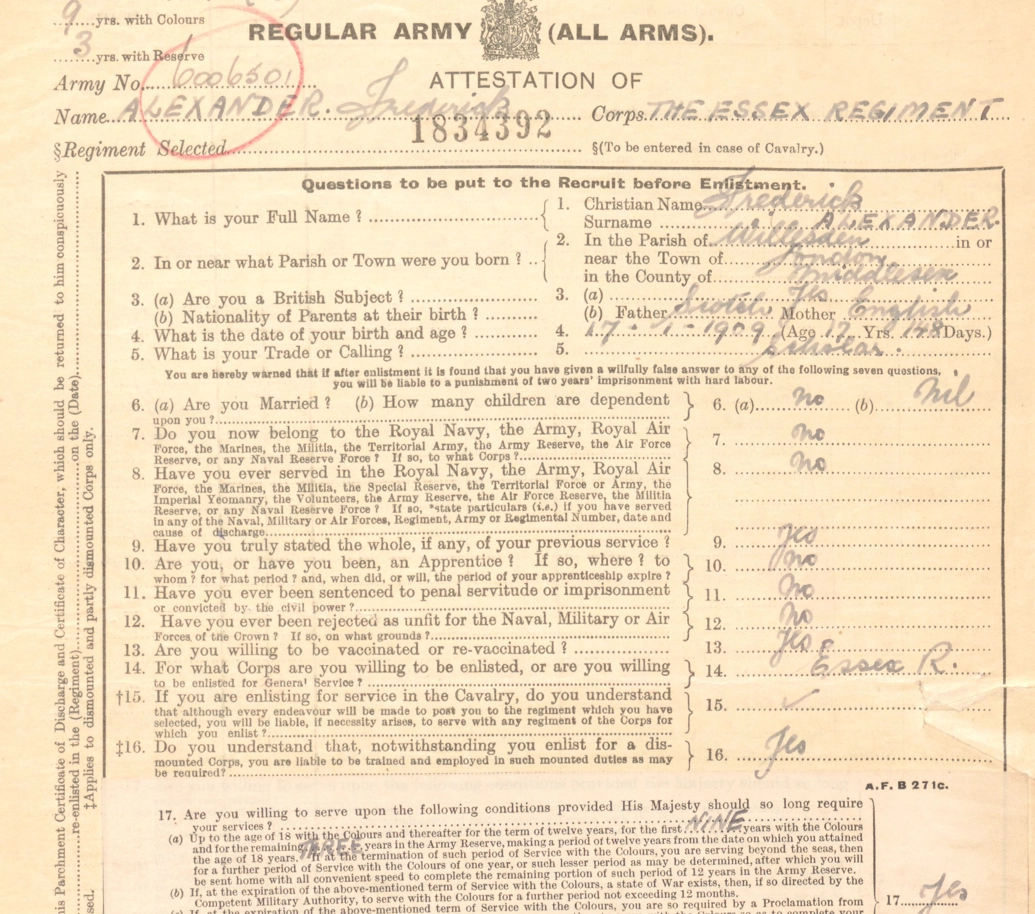 9 yrs. with Colours
3 yrs. with Reserve
REGULAR ARMY (ALL ARMS).
Army No. 6006501
ATTESTATION OF
Name ALEXANDER. Frederick Corps THE ESSEX REGIMENT
1834392
§Regiment Selected §(To be entered in case of Cavalry.)
Questions to be put to the Recruit before Enlistment.
1. What is your Full Name ? 1. Christian Name Frederick
Surname ALEXANDER.
2. In or near what Parish or Town were you born ? 2. In the Parish of Willesden in or
near the Town of London
in the County of Middlesex
3. (a) Are you a British Subject ? 3. (a) Yes
(b) Nationality of Parents at their birth ? (b) Father Scotch Mother English
4. What is the date of your birth and age ? 4. 17 - 1 - 1909 (Age Yrs. 148 Days.)
5. What is your Trade or Calling ? 5. Scholar.
You are hereby warned that if after enlistment it is found that you have given a wilfully false answer to any of the following seven questions,
you will be liable to a punishment of two years' imprisonment with hard labour.
6. (a) Are you Married ? (b) How many children are dependent 6. (a) no (b) Nil
upon you ?
7. Do you now belong to the Royal Navy, the Army, Royal Air 7. no
Force, the Marines, the Militia, the Territorial Army, the Army Reserve, the Air Force
Reserve, or any Naval Reserve Force ? If so, to what Corps ?
8. Have you ever served in the Royal Navy, the Army, Royal Air 8. no
Force, the Marines, the Militia, the Special Reserve, the Territorial Force or Army, the
Imperial Yeomanry, the Volunteers, the Army Reserve, the Air Force Reserve, the Militia
Reserve, or any Naval Reserve Force ? If so, *state particulars (i.e.) if you have served
in any of the Naval, Military or Air Forces, Regiment, Army or Regimental Number, date and
cause of discharge
9. Have you truly stated the whole, if any, of your previous service ? 9. yes
10. Are you, or have you been, an Apprentice ? If so, where ? to 10. no
whom ? for what period ? and, when did, or will, the period of your apprenticeship expire ?
11. Have you ever been sentenced to penal servitude or imprisonment 11. No
or convicted by the civil power ?
12. Have you ever been rejected as unfit for the Naval, Military or Air 12. No
Forces of the Crown ? If so, on what grounds ?
13. Are you willing to be vaccinated or re-vaccinated ? 13. Yes.
14. For what Corps are you willing to be enlisted, or are you willing 14. Essex R.
to be enlisted for General Service ?
†15. If you are enlisting for service in the Cavalry, do you understand 15. ✓
that although every endeavour will be made to post you to the regiment which you have
selected, you will be liable, if necessity arises, to serve with any regiment of the Corps for
which you enlist ?
‡16. Do you understand that, notwithstanding you enlist for a dis- 16. Yes
mounted Corps, you are liable to be trained and employed in such mounted duties as may
be required?
A.F. B 271c.
17. Are you willing to serve upon the following conditions provided His Majesty should so long require
your services ?
(a) Up to the age of 18 with the Colours and thereafter for the term of twelve years, for the first NINE years with the Colours
and for the remaining THREE years in the Army Reserve, making a period of twelve years from the date on which you attained
the age of 18 years. If at the termination of such period of Service with the Colours, you are serving beyond the seas, then
for a further period of Service with the Colours of one year, or such lesser period as may be determined, after which you will
be sent home with all convenient speed to complete the remaining portion of such period of 12 years in the Army Reserve.
(b) If, at the expiration of the above-mentioned term of Service with the Colours, a state of War exists, then, if so directed by the
Competent Military Authority, to serve with the Colours for a further period not exceeding 12 months. 17. Yes
If, at the expiration of the above-mentioned term of Service with the Colours, you are so required by a Proclamation from
his Parchment Certificate of Discharge and Certificate of Character, which should be returned to him conspicuously
re-enlisted in the (Regiment) on the (Date)
‡Applies to dismounted and partly dismounted Corps only.